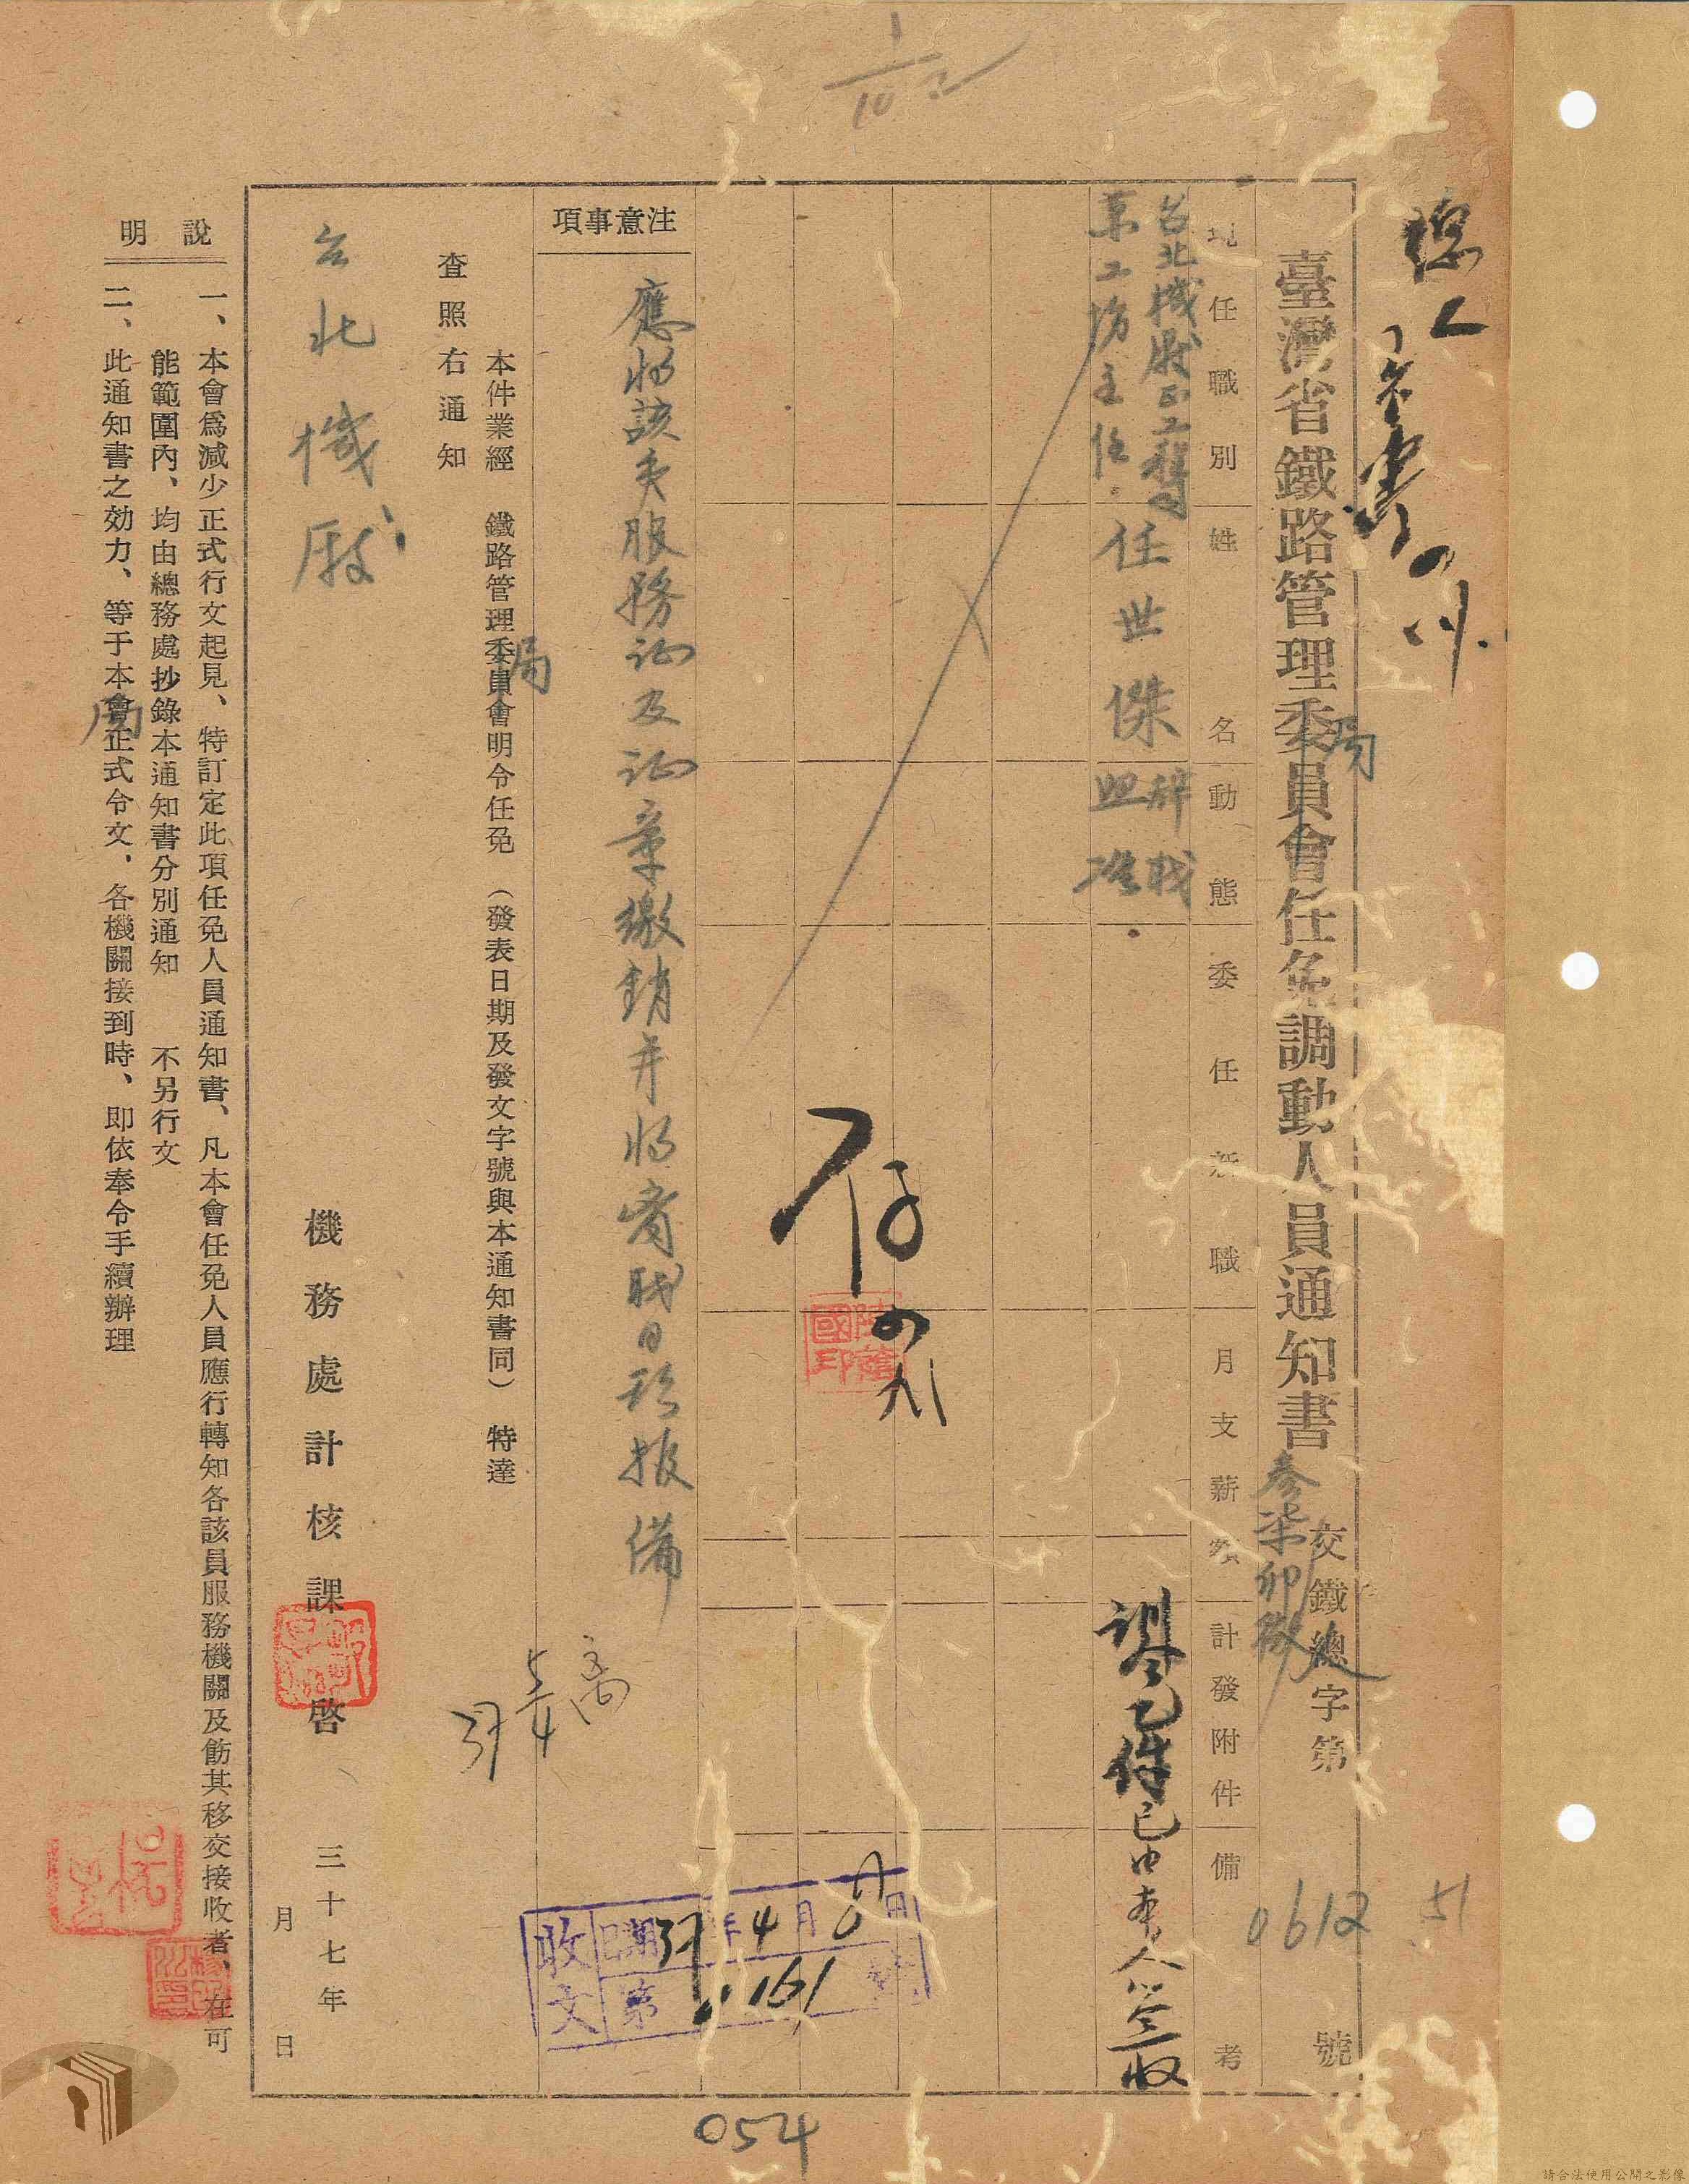 臺灣省鐵路管理委員會任免調動人員通知書
局
參柒卯
交鐵總字第 號
0612 51
現任職別 姓名 動態 委任新職 月支薪額 計發附件 備考
台北機廠正工程司
工場主任
任世傑
辭職
照准
訓令乙件已由本人簽收
存
1/10
注意事項
應將該員服務証及証章繳銷并將離職日期報備
本件業經 鐵路管理委員會明令任免 (發表日期及發文字號與本通知書同) 特達
局
查照右通知
台北機廠
機務處計核課啓
三十七年
月 日
收文
日期 37年4月 日
第 1161 號
37 5/4
說明
一、本會爲減少正式行文起見、特訂定此項任免人員通知書、凡本會任免人員應行轉知各該員服務機關及飭其移交接收者、在可
能範圍內、均由總務處抄錄本通知書分別通知 不另行文
二、此通知書之効力、等于本會正式令文，各機關接到時、即依奉令手續辦理
局
054
請合法使用公開之影像